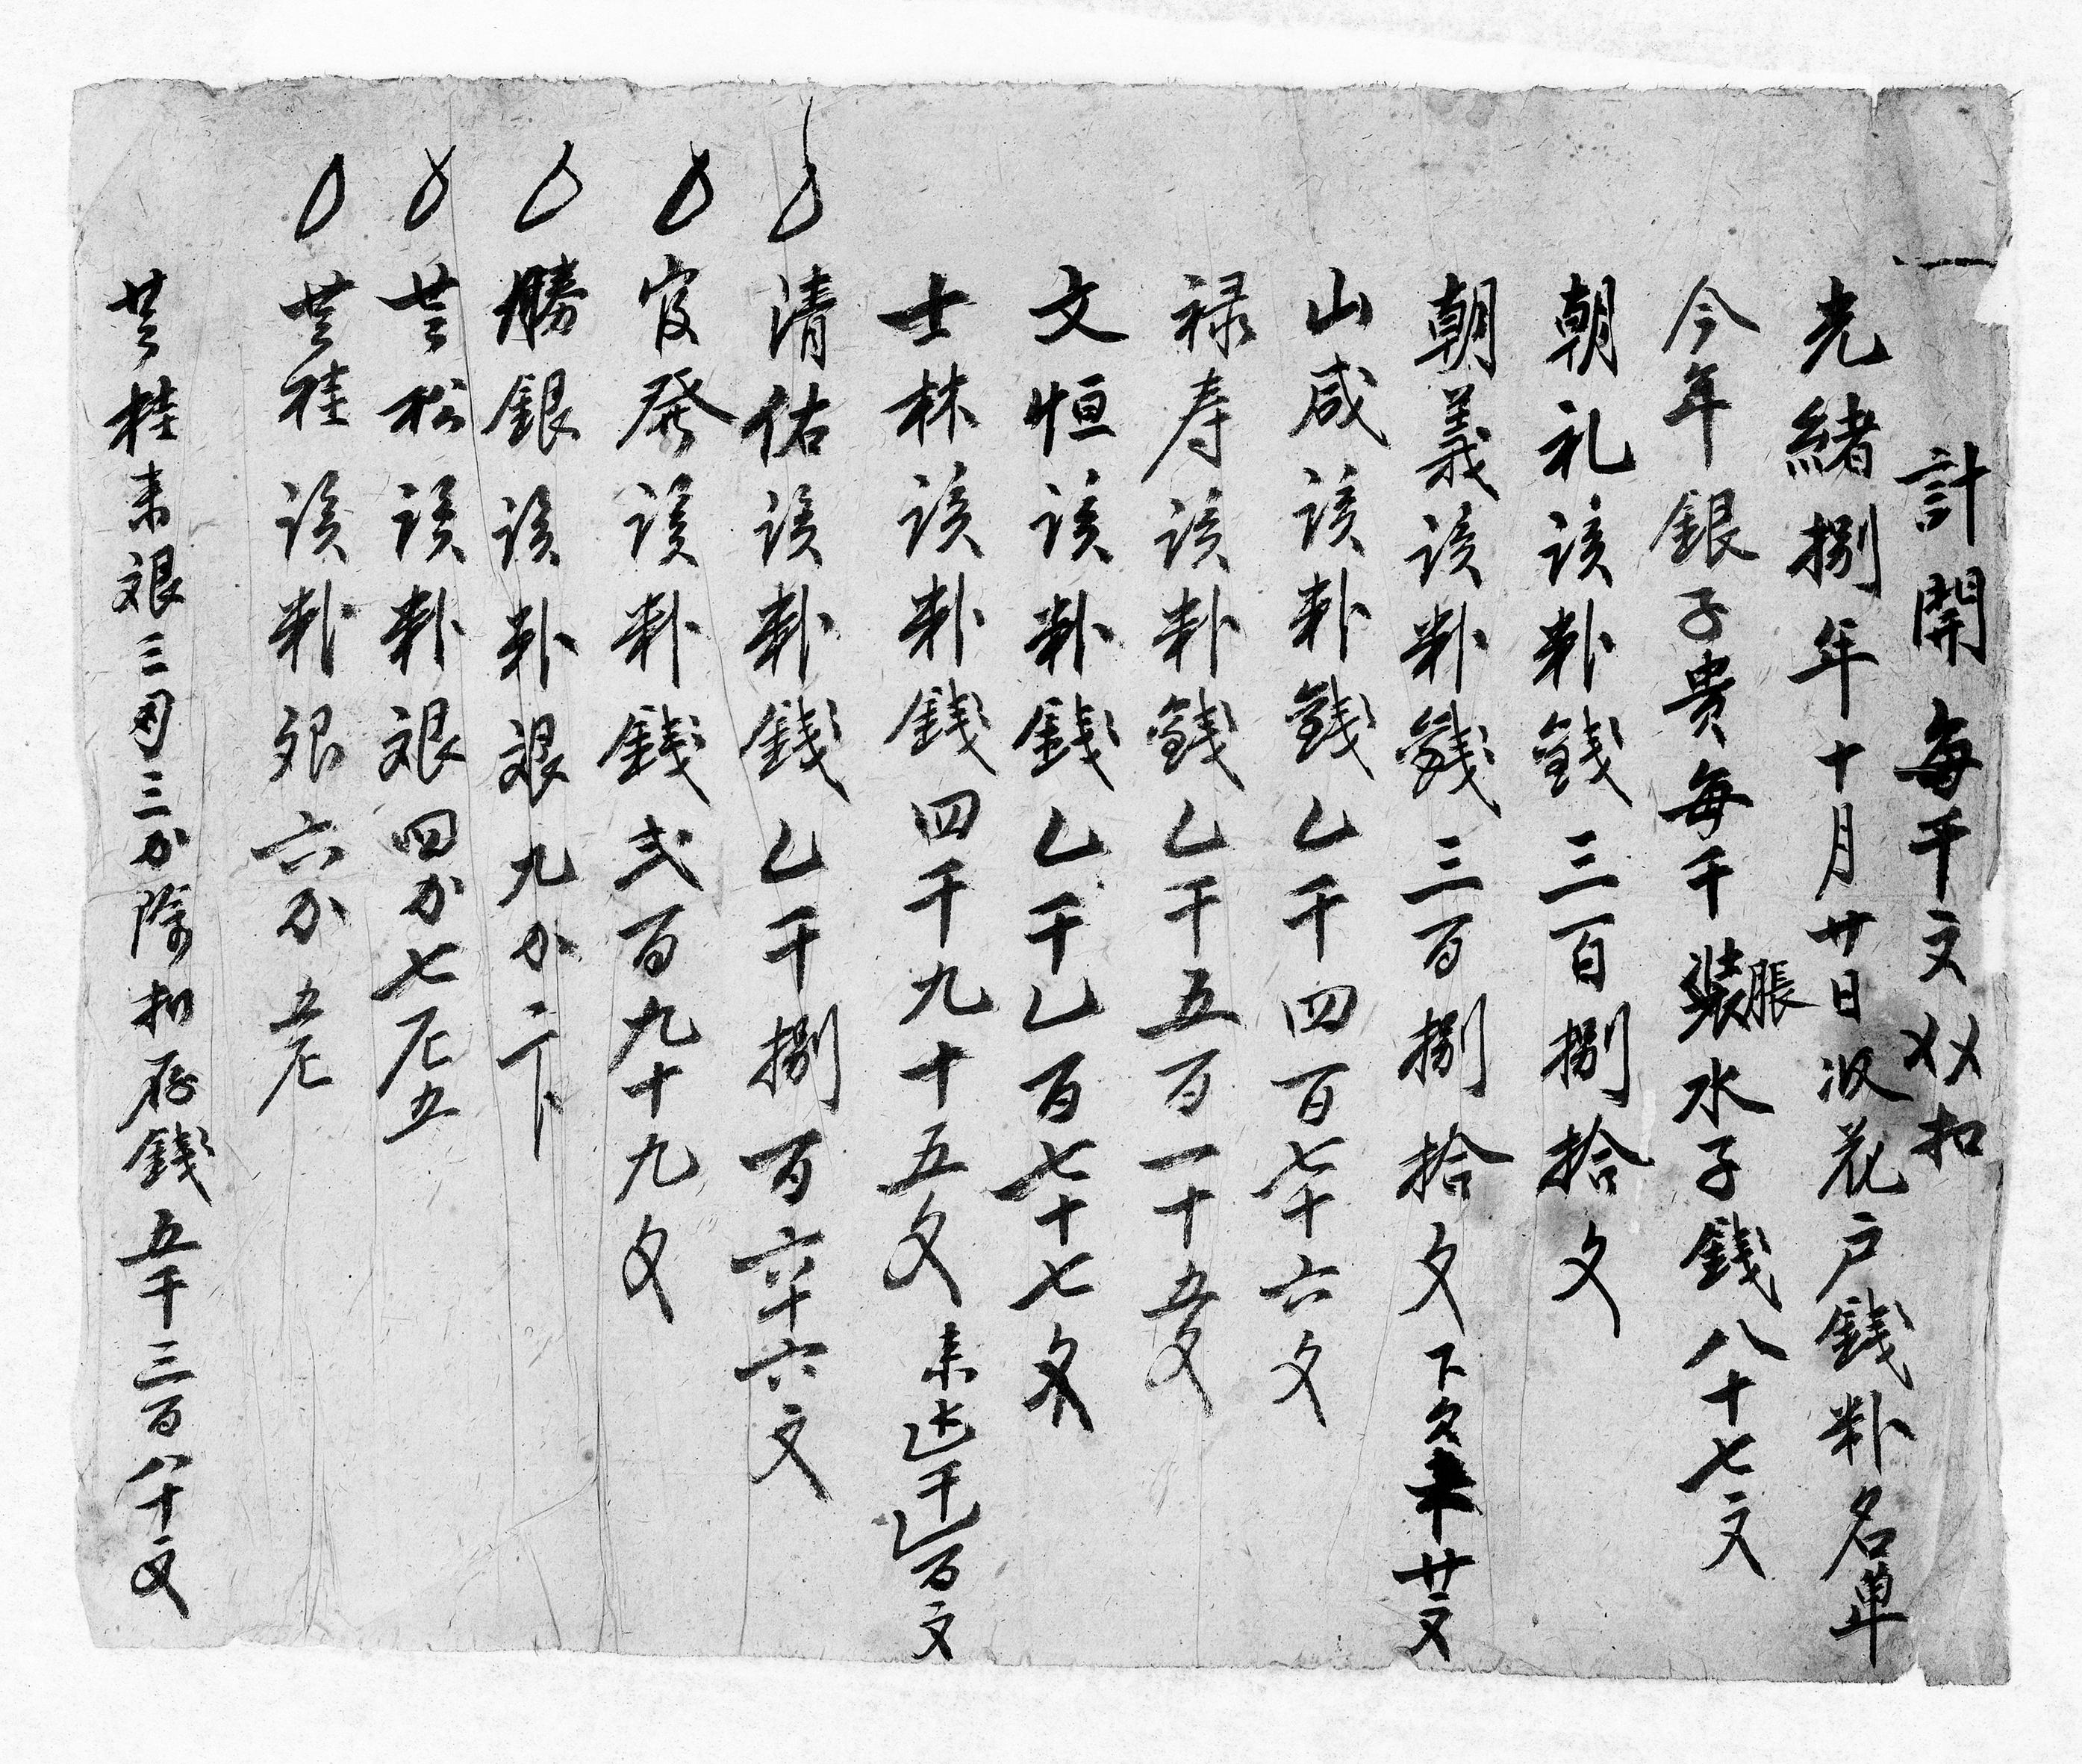 一 計開 每千文 㐅㐅扣
光緒捌年十月廿日收花户錢粆名單
今年銀子貴每千裝脹水子錢八十七文
朝礼該粆錢三百捌拾文
朝義該粆錢三百捌拾文 下欠来廿文
山咸該粆錢乙千四百七十六文
禄寿該粆錢乙千五百一十五文
文恒該粆錢乙千乙百七十七文
士林該粆錢四千九十五文 来乙千乙百文
清佑該粆錢乙千捌百六十六文
發該粆錢弍百九十九文
勝銀該粆艮九分二下
芸松該粆艮四分七厘五
芸桂該粆艮六分五厘
芸桂来艮三匁三分除扣存錢五千三百八十文